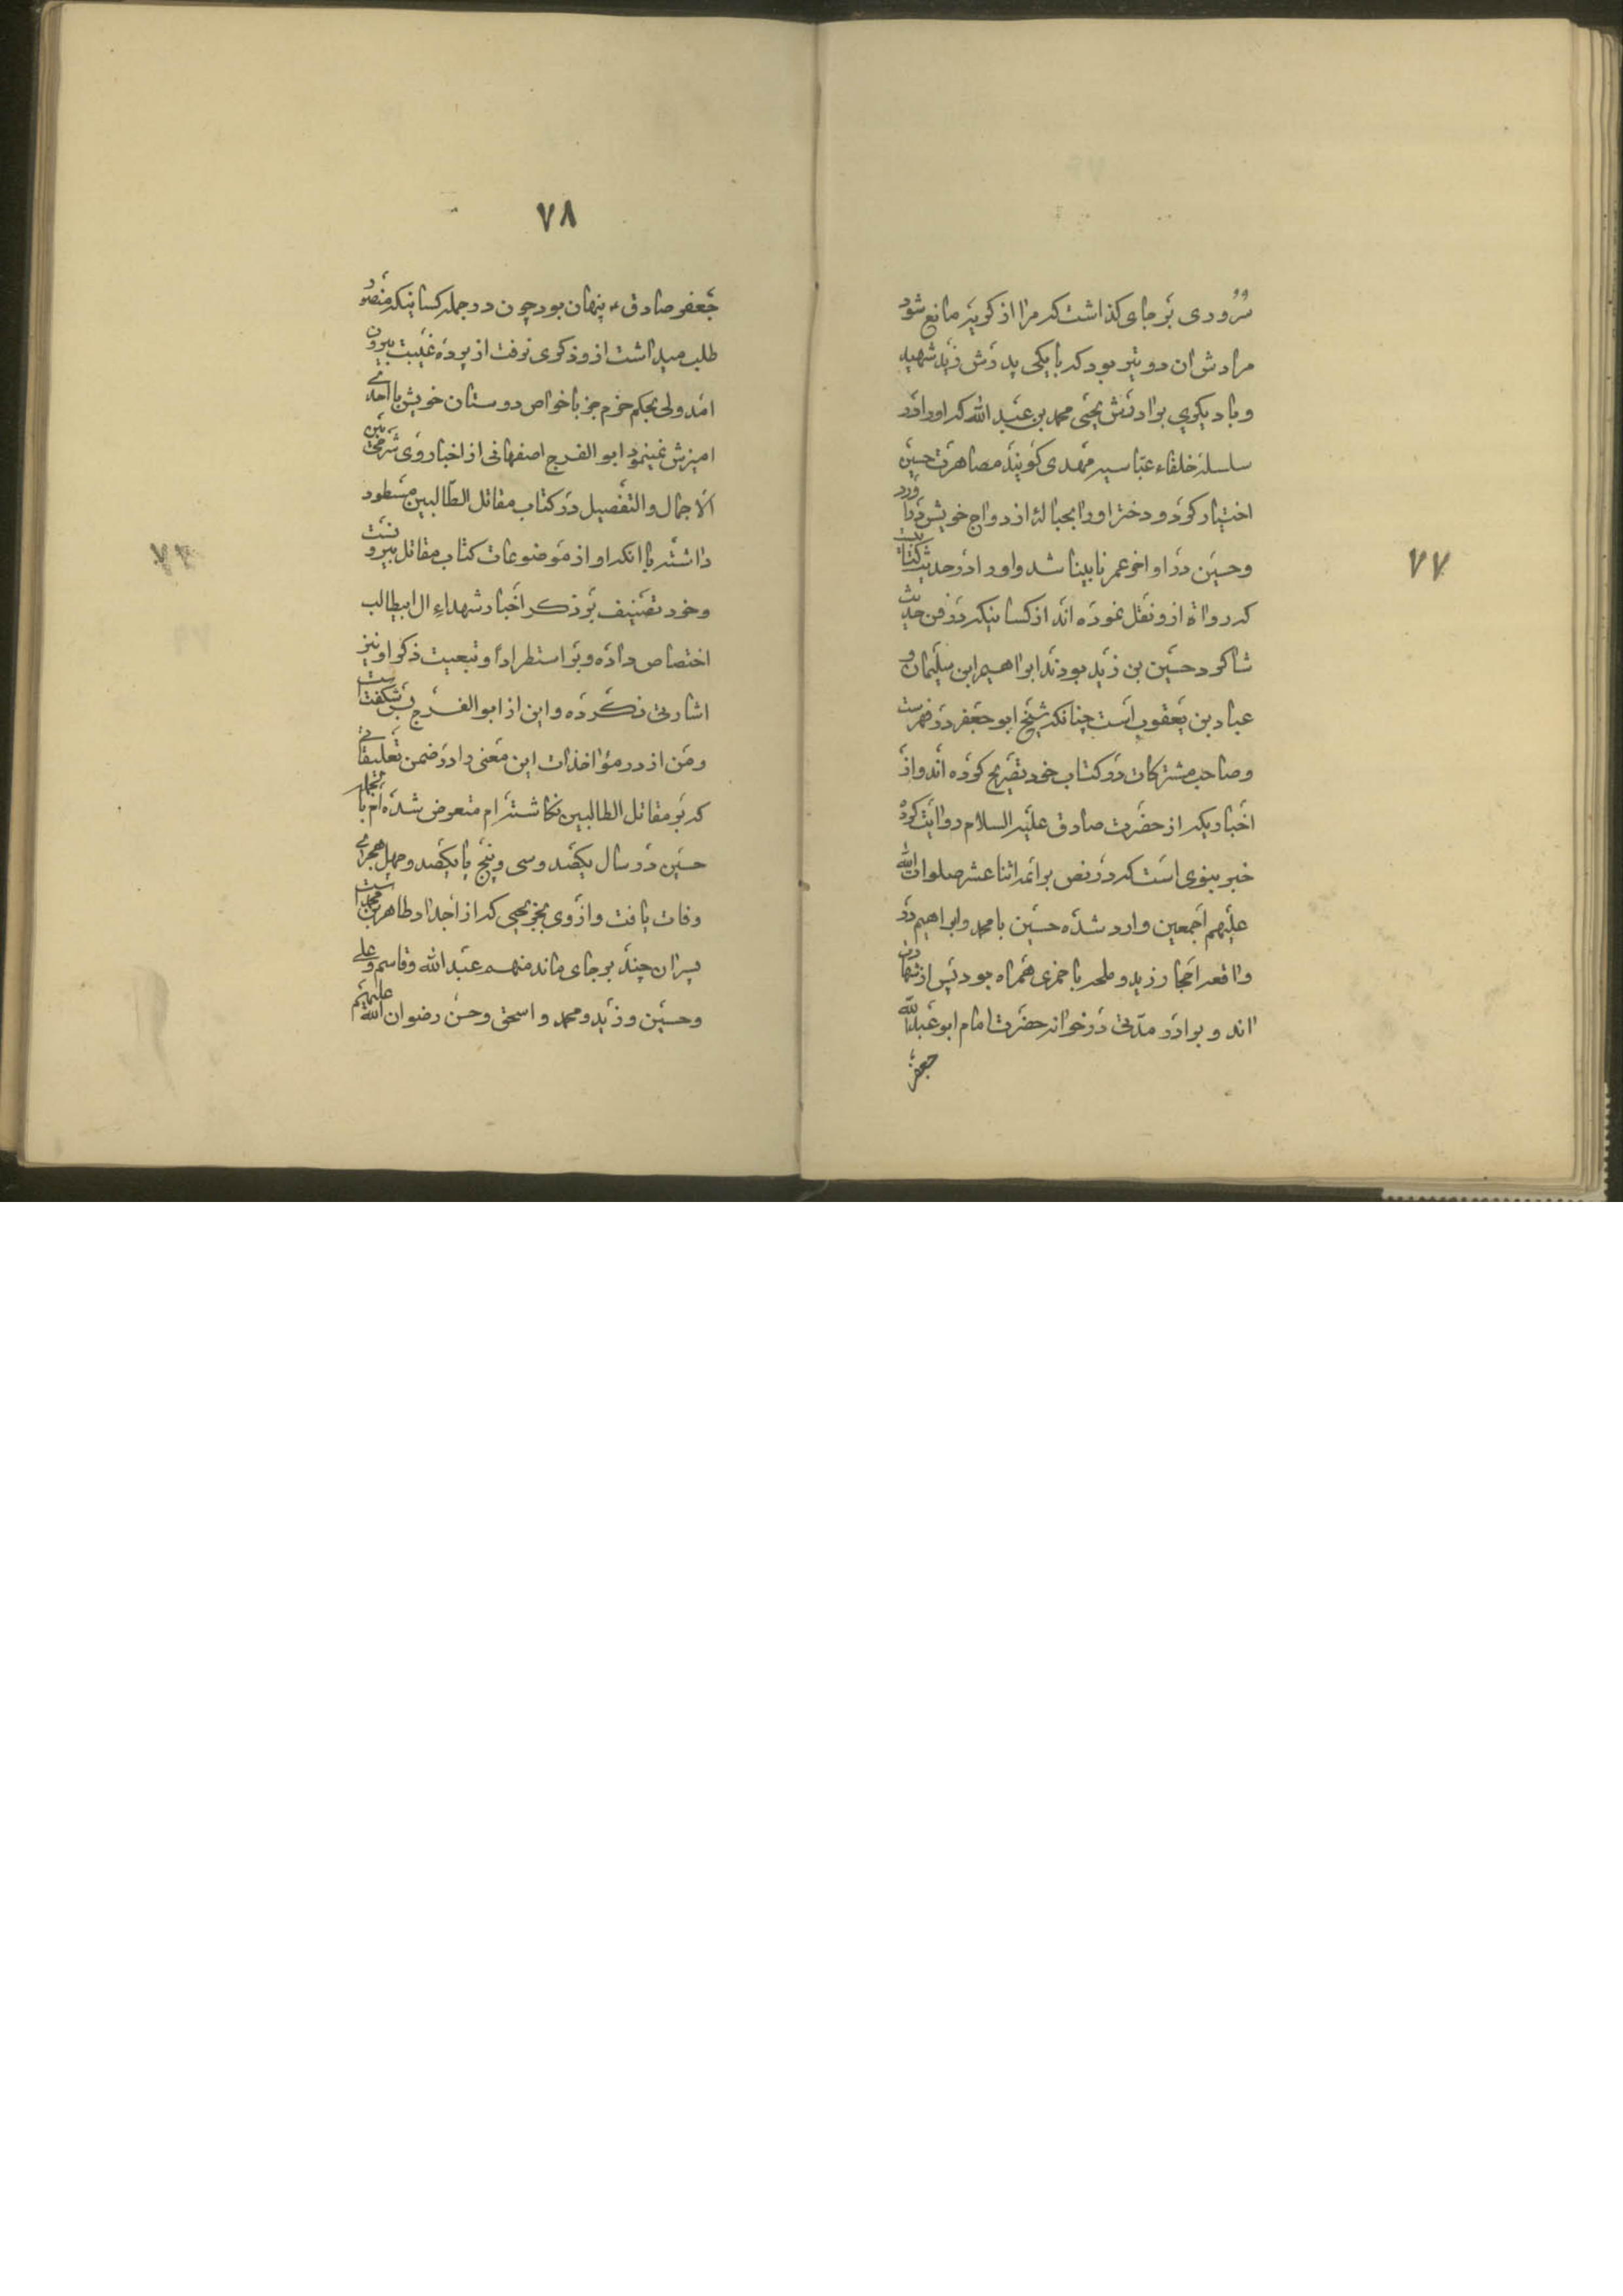 ۷۷
سُرُوری بر جای کذاشت که مرا از کریه مانع شود
مرادش ان دو تیر بود که با یکی پدرش زید شهید
و با دیکری برادرش یحیی محمد بن عبد الله که او را در
سلسلهٔ خلفاء عباسیه مهدی کویند مصاهرت حسین
اختیار کرد و دختر او را بحبالهٔ ازدواج خویش در اورد
و حسین در اواخر عمر نابینا شد و او را در حدیث کتابیست
که رواة ازو نقل نموده اند از کسانیکه در فن حدیث
شاکرد حسین بن زید بودند ابراهیم ابن سلیمان و
عباد بن یعقوب است چنانکه شیخ ابو جعفر در فهرست
و صاحب مشترکات در کتاب خود تصریح کرده اند و از
اخباریکه از حضرت صادق علیه السلام روایت کرده
خبر نبوی است که در نص بر ائمه اثنا عشر صلوات الله
علیهم اجمعین وارد شده حسین با محمد و ابراهیم در
واقعه احجار زید و ملحه باخمری همراه بود پس از شهادت
اند و برادر مدتی در خوانه حضرت امام ابو عبد الله
جعفر
۷۸
جعفر صادق ع پنهان بود چون در جمله کسانیکه منصور
طلب میداشت ازو ذکری نرفت از پرده غیبت بیرون
امد ولی بحکم حزم جز با خواص دوستان خویش با احدی
امیزش نمینمود ابو الفرج اصفهانی از اخبار وی شرحی بین
الاجمال والتفصیل در کتاب مقاتل الطالبین مسطور
داشته با انکه او از موضوعات کتاب مقاتل بیرونست
و خود تصنیف بر ذکر اخبار شهداء ال ابیطالب
اختصاص داده و بر استطراداً و تبعیت ذکر او نیز
اشارتی نکرده و این از ابو الفرج بس شکفت است
و من از در مؤاخذات این معنی را در ضمن تعلیقاتی
که بر مقاتل الطالبین نکاشته ام متعرض شده ام بالجمله
حسین در سال یکصد و سی و پنج یا یکصد و چهل هجرامی
وفات یافت و از وی بجز یحیی که از اجداد طاهر بن محمد است
پسران چند بر جای ماند منهم عبد الله و قاسم و علی
و حسین و زید و محمد و اسحق و حسن رضوان الله علیهم